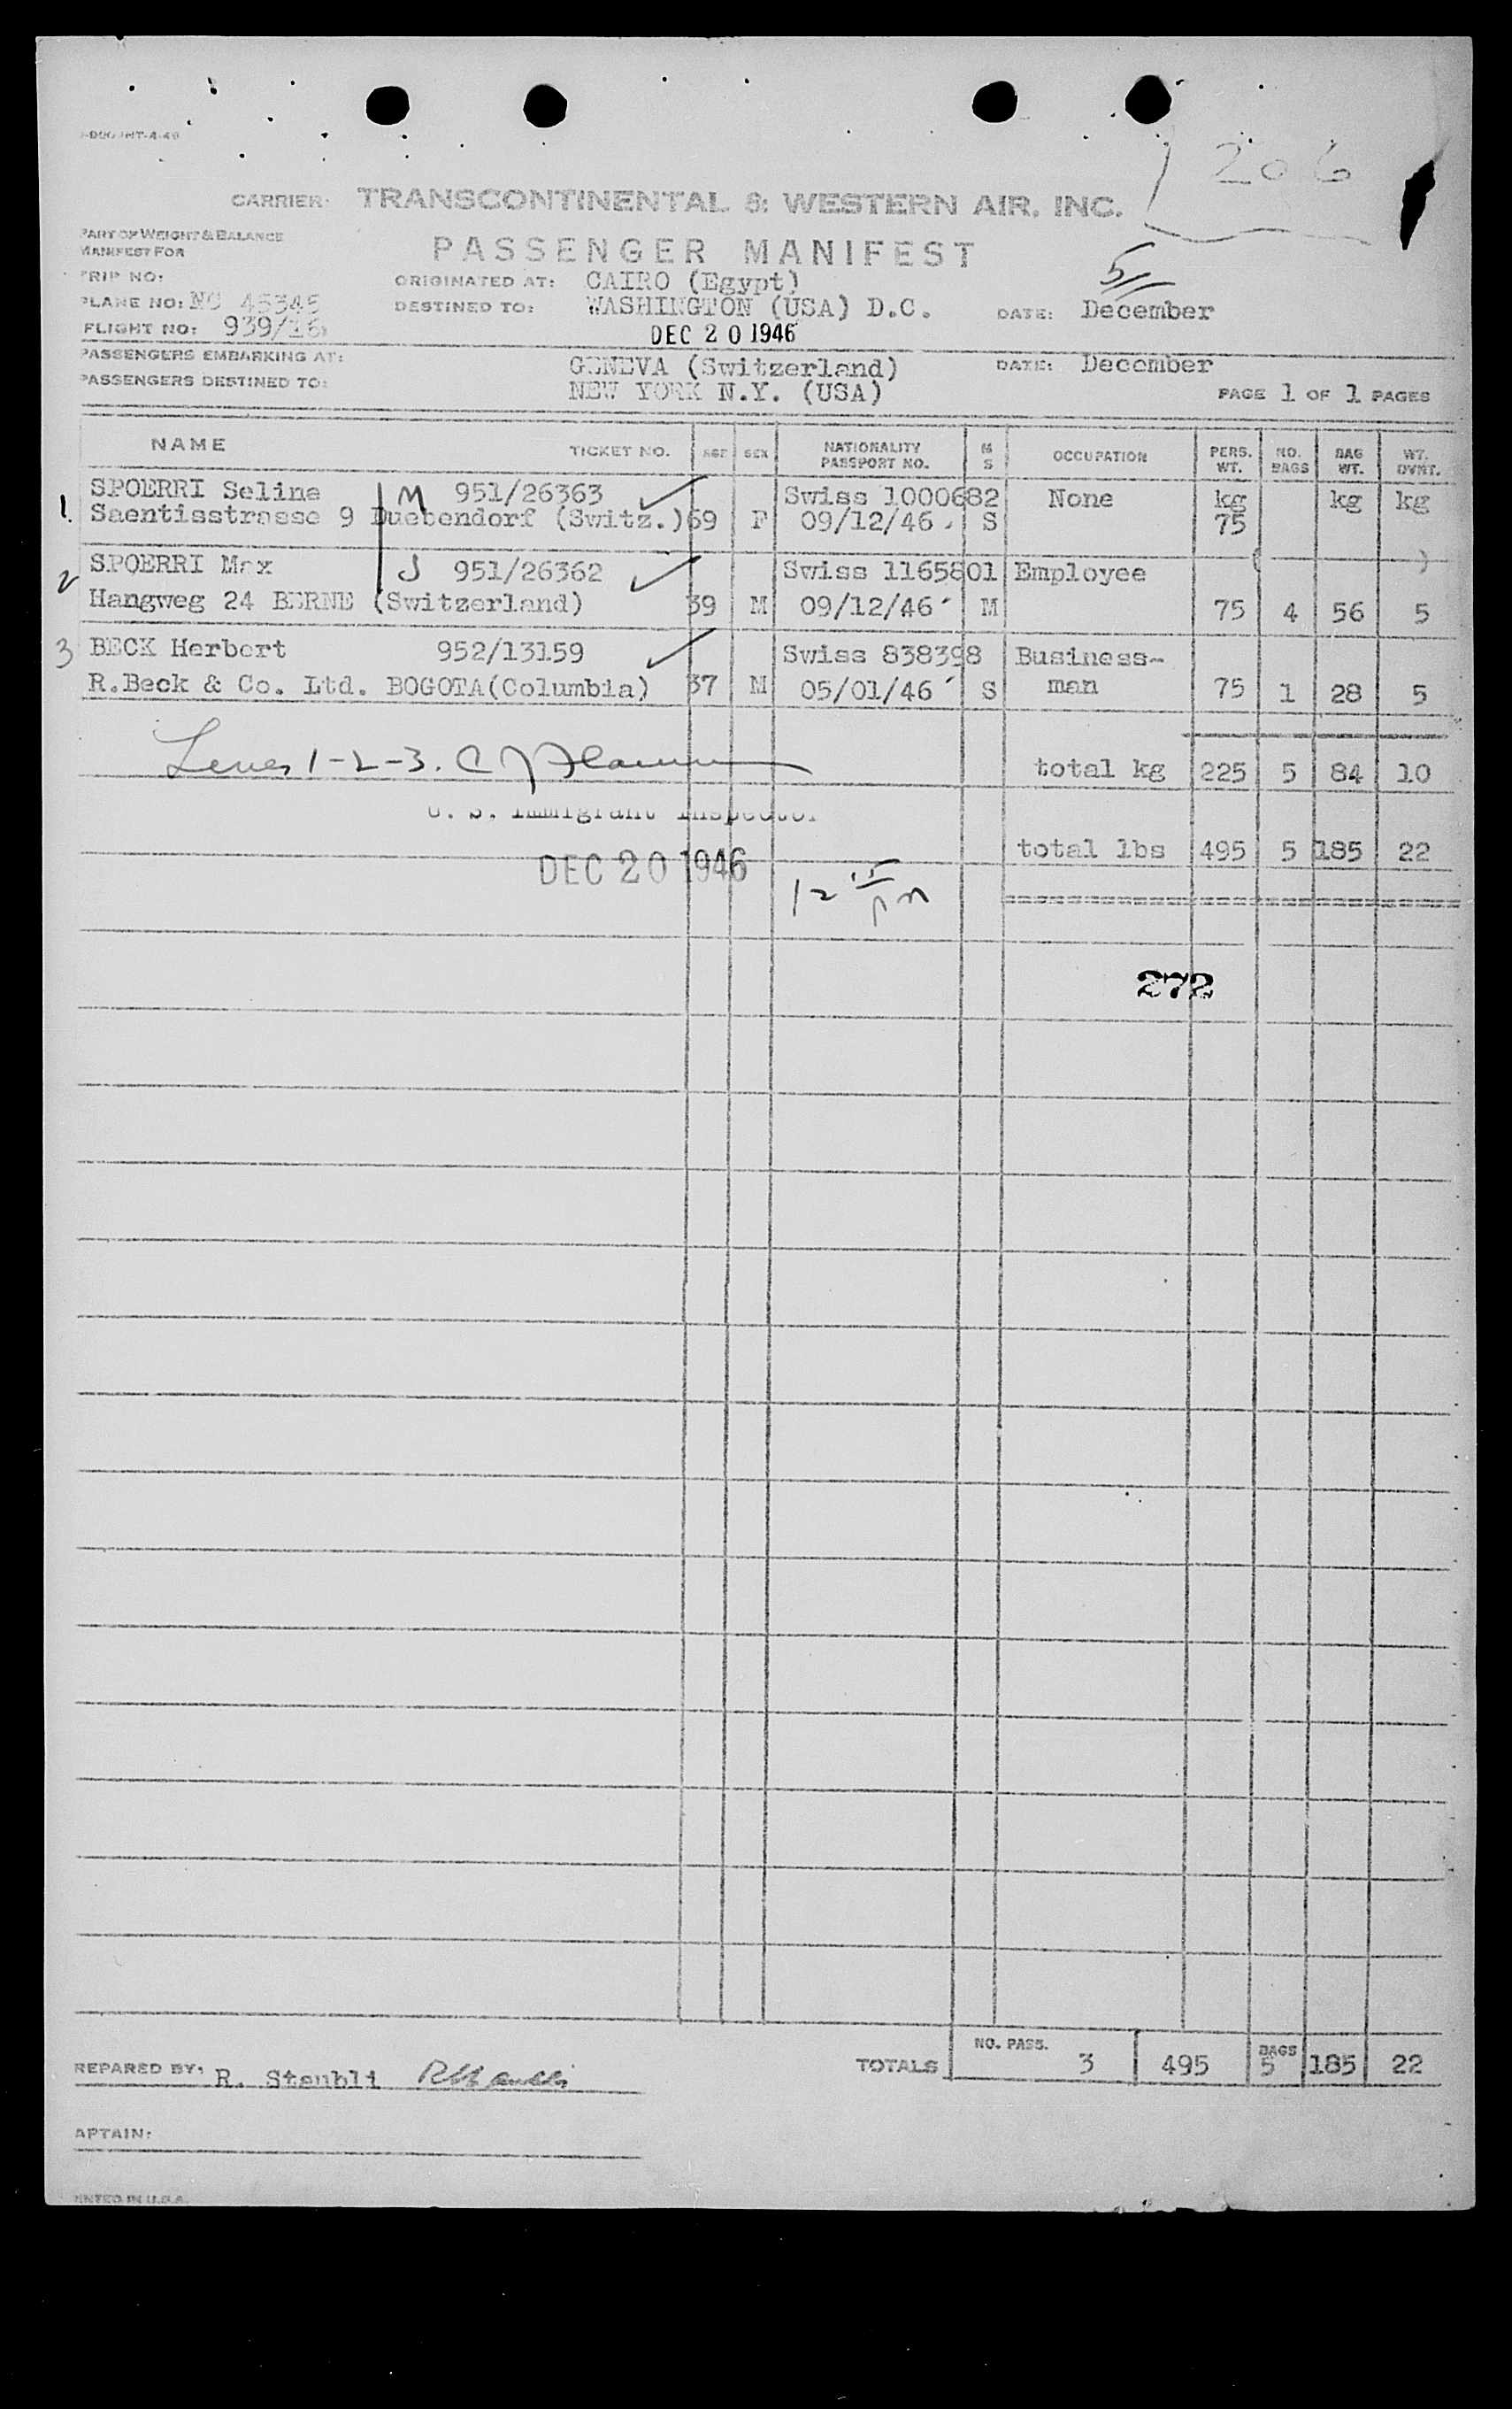 206
CARRIER: TRANSCONTINENTAL & WESTERN AIR, INC.
PART OF WEIGHT & BALANCE
MANIFEST FOR
PASSENGER MANIFEST
5
TRIP NO:
ORIGINATED AT: CAIRO (Egypt)
PLANE NO: NC 45345
DESTINED TO: WASHINGTON (USA) D.C. DATE: December
FLIGHT NO: 939/16
DEC 20 1946
PASSENGERS EMBARKING AT: GENEVA (Switzerland) DATE: December
PASSENGERS DESTINED TO: NEW YORK N.Y. (USA) PAGE 1 OF 1 PAGES
NAME TICKET NO. AGE SEX NATIONALITY PASSPORT NO. M S OCCUPATION PERS. WT. NO. BAGS BAG WT. WT. OVWT.
SPOERRI Selina M 951/26363 Swiss 1000682 None kg kg kg
1. Saentisstrasse 9 Duebendorf (Switz.) 69 F 09/12/46 S 75
SPOERRI Max J 951/26362 Swiss 1165801 Employee
2 Hangweg 24 BERNE (Switzerland) 39 M 09/12/46 M 75 4 56 5
3 BECK Herbert 952/13159 Swiss 838398 Business-
R.Beck & Co. Ltd. BOGOTA(Columbia) 37 M 05/01/46 S man 75 1 28 5
1-2-3.
total kg 225 5 84 10
U. S. Immigrant Inspector
total lbs 495 5 185 22
DEC 20 1946
12 15 pm
272
REPARED BY: R. Staubli
TOTALS NO. PASS. 3 495 BAGS 5 185 22
APTAIN:
INTED IN U.S.A.